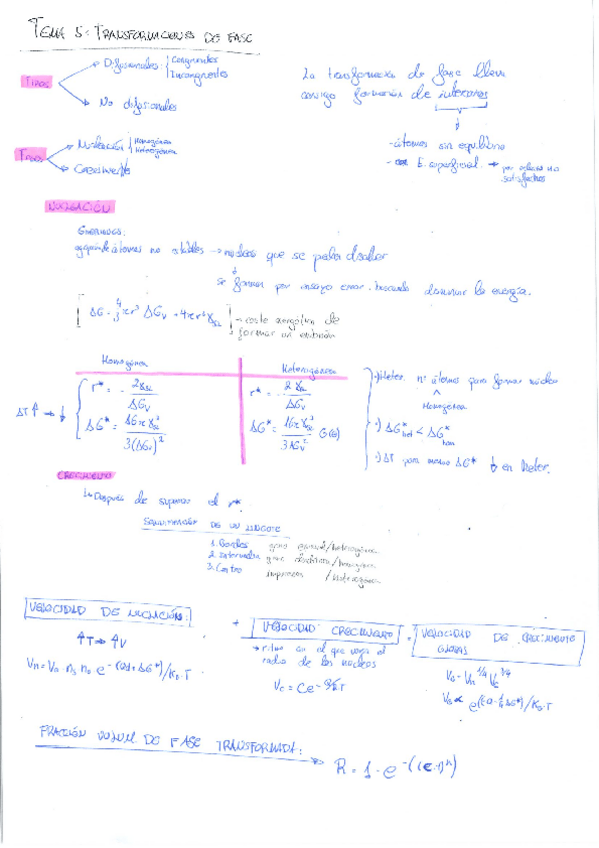 TEMA 5: TRANSFORMACIONES DE FASE
TIPOS
Difusionales: Congruentes
Incongruentes
No difusionales
La transformación de fase llevan
consigo formación de interfases
- átomos sin equilibrio
- E. superficial → por enlaces no
satisfechos
FASES
Nucleación Homogénea
Heterogénea
Crecimiento
NUCLEACIÓN
EMBRIONES:
átomos no estables → núcleos que se pueden disolver
se forman por ensayo error. buscando disminuir la energía.
ΔG = 4/3 πr³ ΔGv + 4πr²γSL → coste energético de
formar un embrión
Homogénea Heterogénea
ΔT↑ → ↓
r* = - 2γSL / ΔGv
ΔG* = 16πγSL³ / 3(ΔGv)²
r* = - 2γSL / ΔGv
ΔG* = 16πγSL³ / 3ΔGv² G(θ)
Heter. nº átomos para formar núcleo
^
Homogénea
ΔG*het < ΔG*hom
ΔT para mismo ΔG* ↓ en Heter.
CRECIMIENTO
Después de superar el r*
DE UN LINGOTE
1. Bordes grano /heterogénea
2. Intermedia grano /homogénea
3. Centro /heterogénea
VELOCIDAD DE NUCLEACIÓN:
↑T → ↑V
+ VELOCIDAD CRECIMIENTO
→ ritmo en el que crece el
radio de los núcleos
Vc = Ce
= VELOCIDAD DE CRECIMIENTO
GLOBAL
FRACCIÓN VOLUM DE FASE TRANSFORMADA:
→ R = 1 - e^-((c·t)^n)